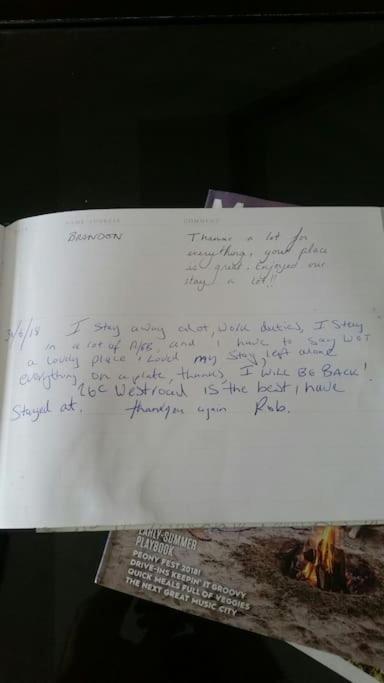 NAME/ADDRESS
COMMENT
BRANDON
Thanks a lot for
everything, your place
is great. Enjoyed our
stay a lot!!
I Stay away alot, work duties, I Stay
in a lot of B/B, and I have to say WOT
a lovely place I Loved my Stay, left alone
everything on a plate, thanks, I WILL BE BACK!
26c Westroad IS the best i have
Stayed at. thankyou again Rob.
EARLY-SUMMER
PLAYBOOK
PEONY FEST 2018!
DRIVE-INS KEEPIN' IT GROOVY
QUICK MEALS FULL OF VEGGIES
THE NEXT GREAT MUSIC CITY